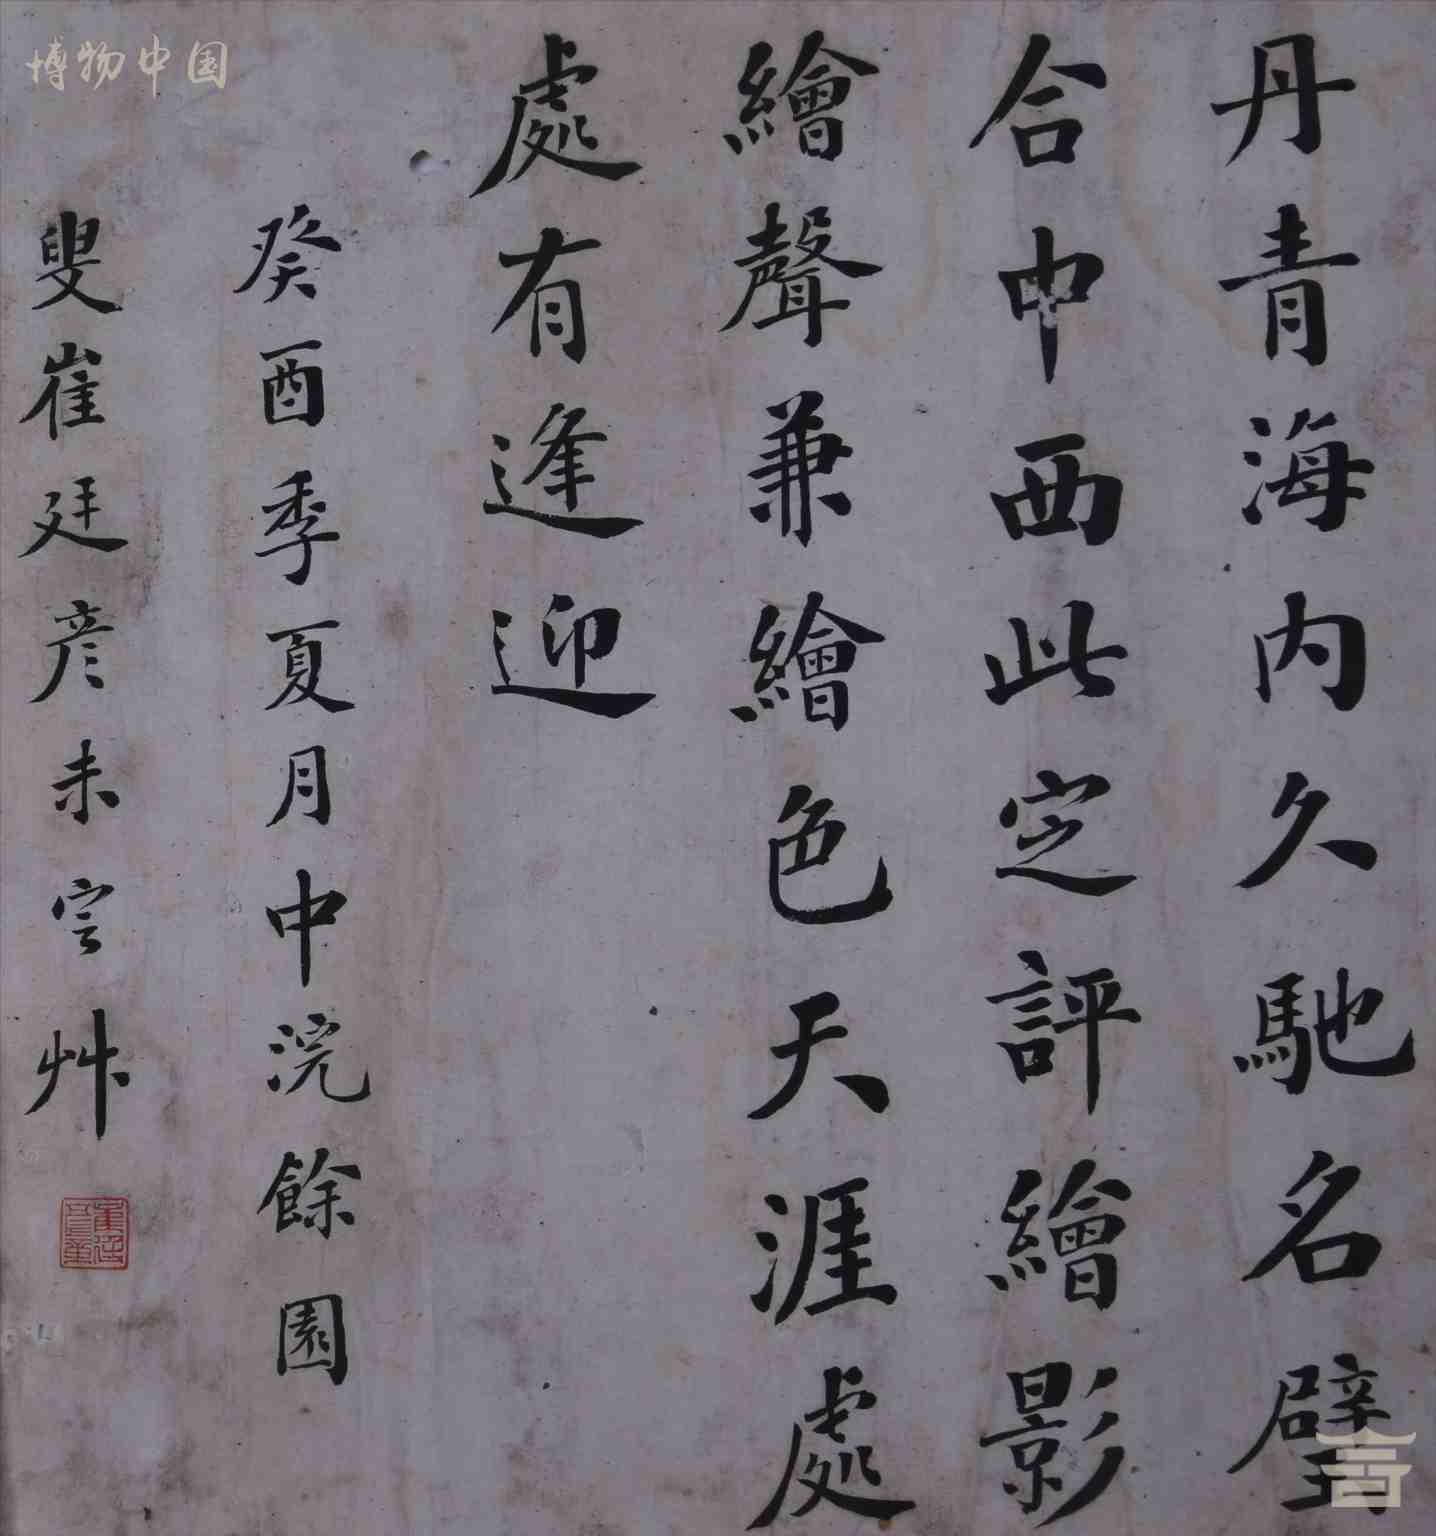 丹青海内久馳名璧
合中西此定評繪影
繪聲兼繪色天涯處
處有逢迎
癸酉季夏月中浣餘園
叟崔廷彥未定艸
博物中国